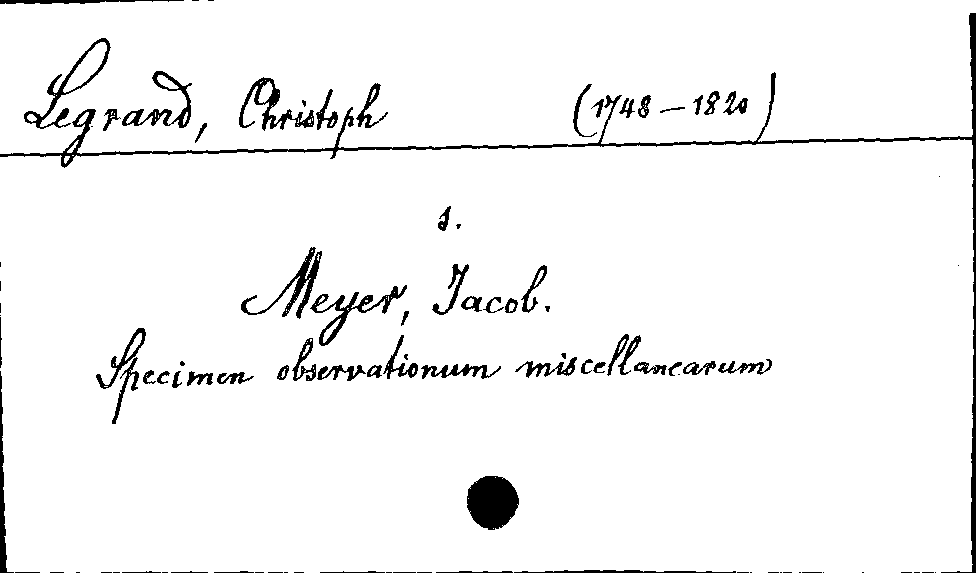 Legrand, Christoph (1748-1820)
s.
Meyer, Jacob.
Specimen observationum miscellanearum